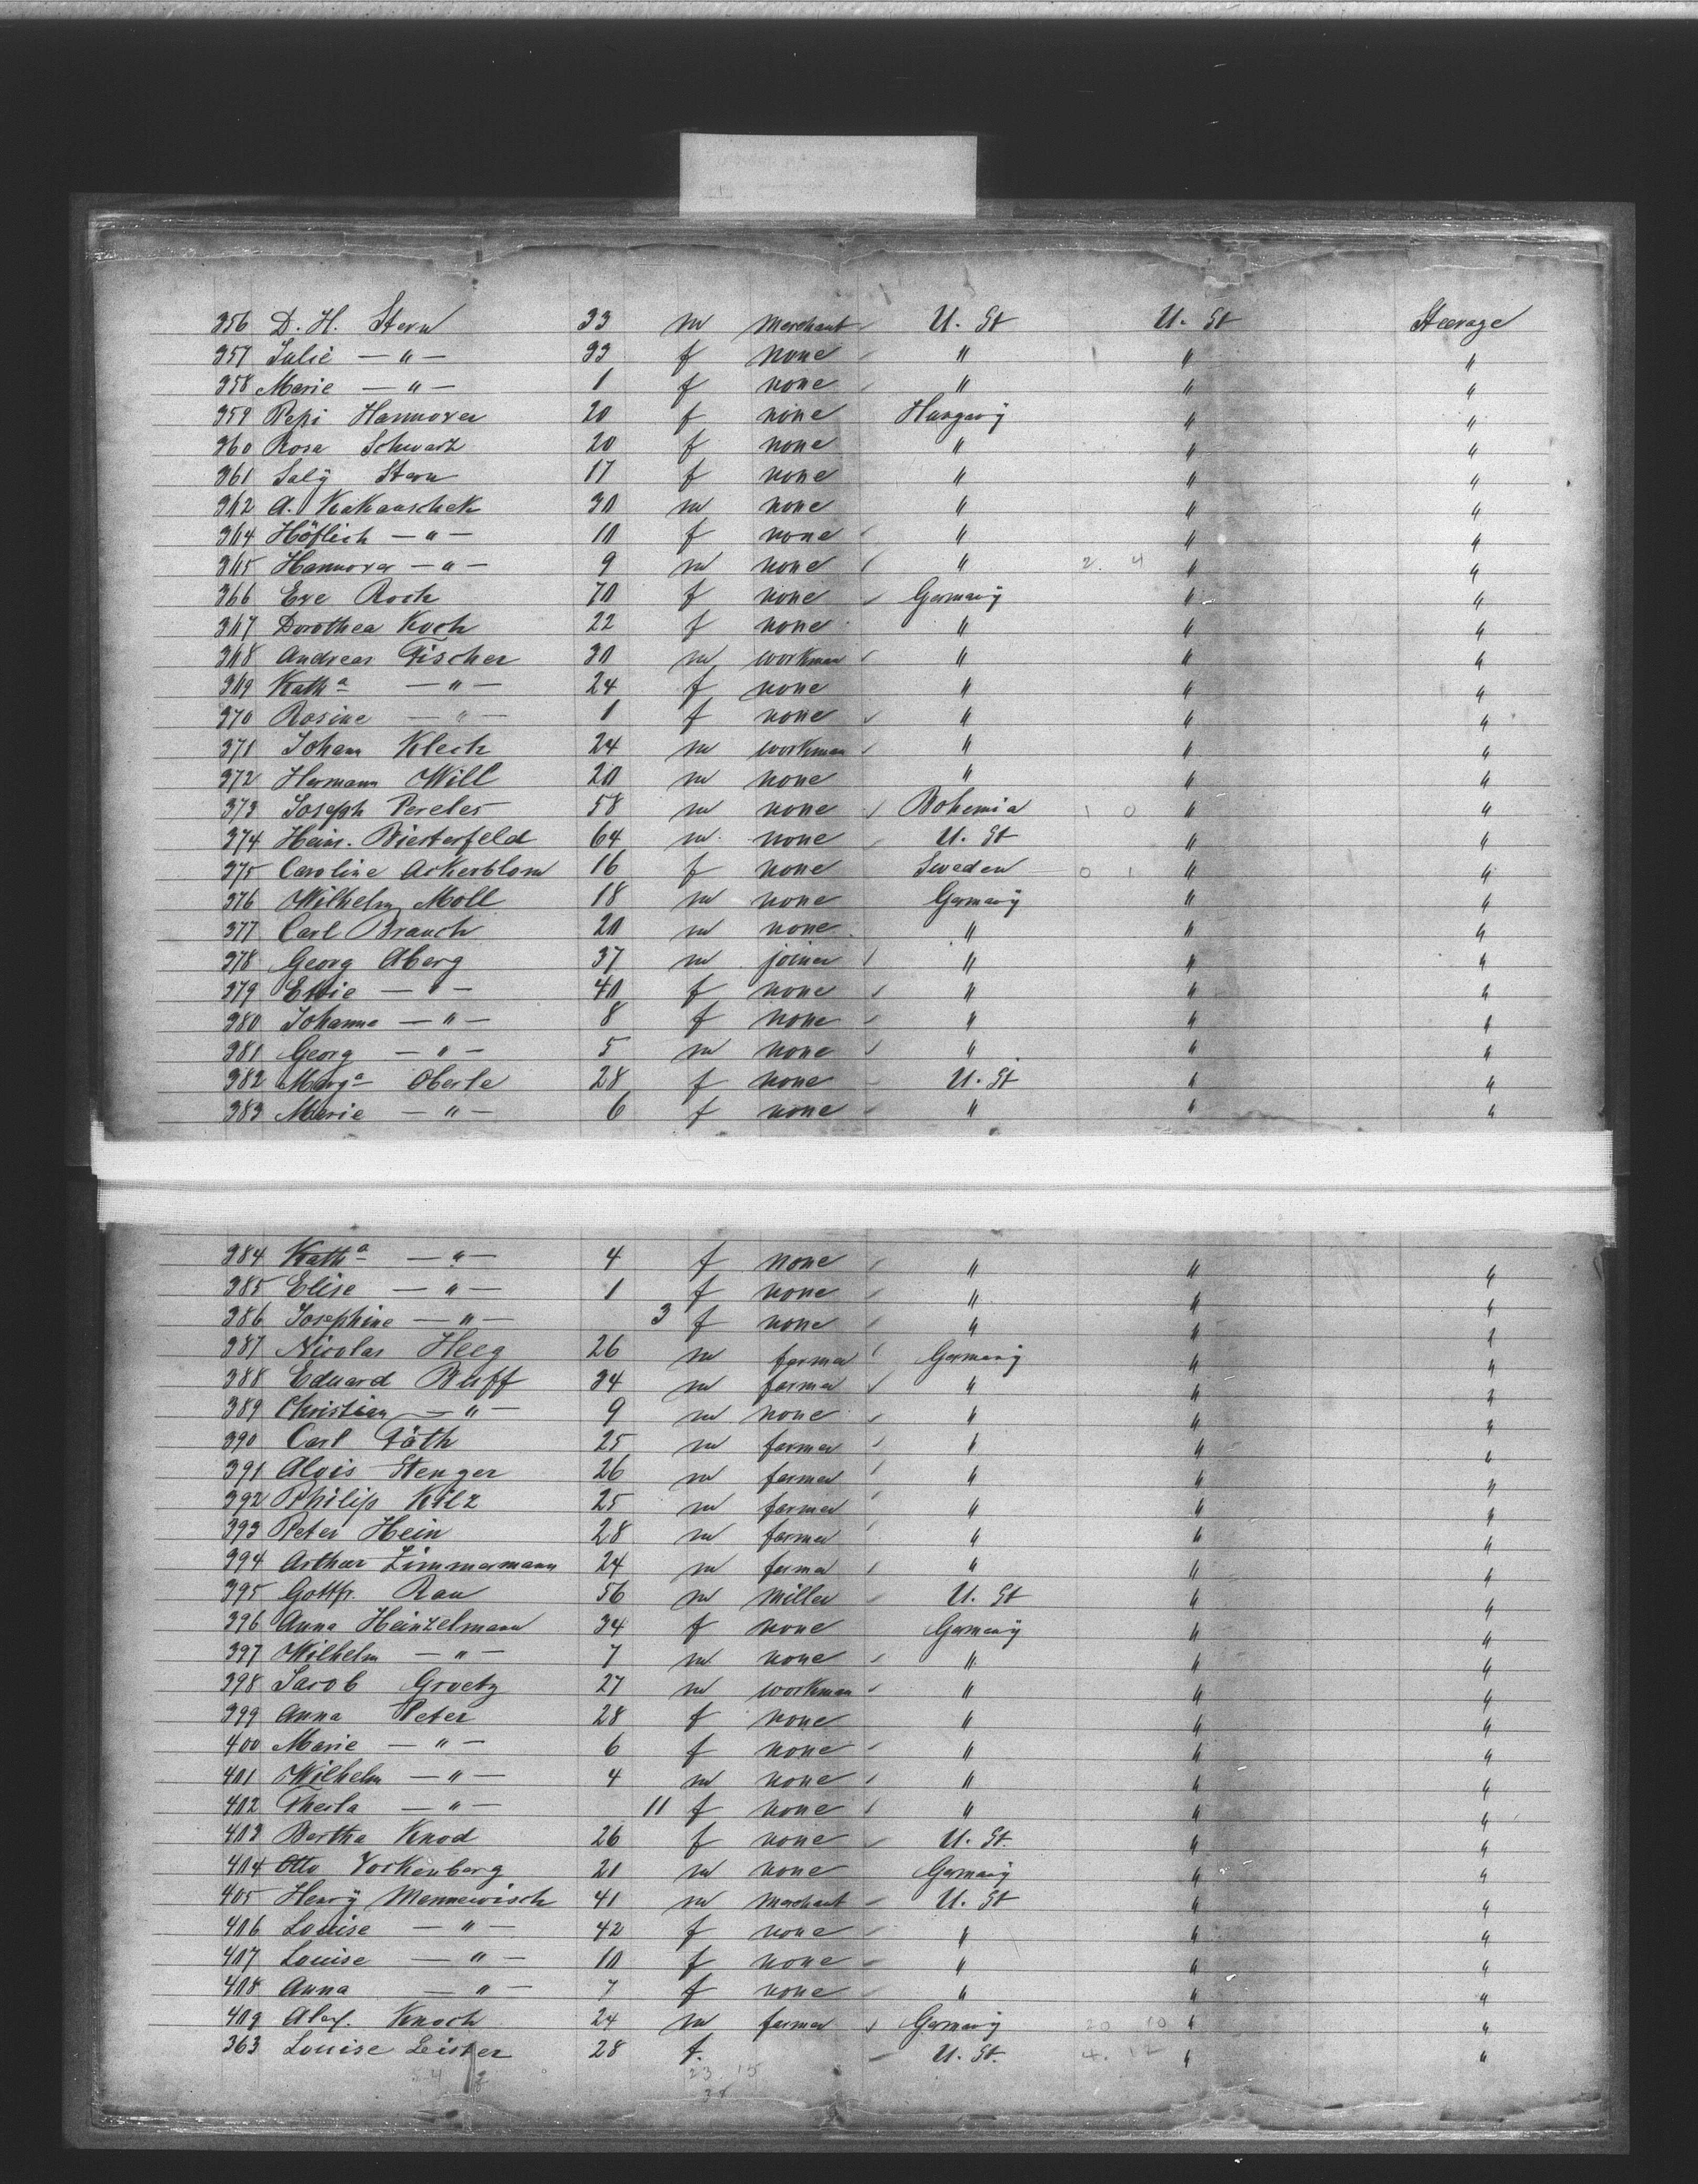 356 D. H. Stern 33 m merchant U. St U. St Steerage
357 Julie — " — 33 f none " " "
358 Marie — " — 1 f none " " "
359 Pepi Hannover 20 f none Hungarÿ " "
360 Rosa Schwarz 20 f none " " "
361 Salÿ Stern 17 f none " " "
362 A. 30 m none " " "
364 Höflich — " — 10 f none " " "
365 Hannover — " — 9 m none " 2. 4 " "
366 Eve Roch 70 f none Germanÿ " "
367 Dorothea Koch 22 f none " " "
368 Andreas Fischer 30 m workman " " "
369 Kathª — " — 24 f none " " "
370 Rosine — " — 1 f none " " "
371 Johann Klech 24 m workman " " "
372 Hermann Will 20 m none " " "
373 Joseph Pereles 58 m none Bohemia 1 0 " "
374 Heinr. Biesterfeld 64 m none U. St " "
375 Caroline Ackerblom 16 f none Sweden 0 1 " "
376 Wilhelm Moll 18 m none Germanÿ " "
377 Carl Brauch 20 m none " " "
378 Georg Aberg 37 m joiner " " "
379 — " — 40 f none " " "
380 Johanna — " — 8 f none " " "
381 Georg — " — 5 m none " " "
382 Margª Oberle 28 f none U. St " "
383 Marie — " — 6 f none " " "
384 Kathª — " — 4 f none " " "
385 Elise — " — 1 f none " " "
386 Josephine — " — 3 f none " " "
387 Nicolas Heeg 26 m farmer Germanÿ " "
388 Eduard Buff 34 m farmer " " "
389 Christian — " — 9 m none " " "
390 Carl Fäth 25 m farmer " " "
391 Alois Stenger 26 m farmer " " "
392 Philip Kilz 25 m farmer " " "
393 Peter Hein 28 m farmer " " "
394 Arthur Zimmermann 24 m farmer " " "
395 Gottfr. Rau 56 m miller U. St " "
396 Anna Heinzelmann 34 f none Germanÿ " "
397 Wilhelm — " — 7 m none " " "
398 Jacob Groetz 27 m workman " " "
399 Anna Peter 28 f none " " "
400 Marie — " — 6 f none " " "
401 Wilhelm — " — 4 m none " " "
402 — " — 11 f none " " "
403 Bertha Knod 26 f none U. St. " "
404 Otto Vockenberg 21 m none Germanÿ " "
405 Henrÿ Mennewisch 41 m merchant U. St " "
406 Louise — " — 42 f none " " "
407 Louise — " — 10 f none " " "
408 Anna — " — 7 f none " " "
409 Alex. Knoch 24 m farmer Germanÿ 20 10 " "
363 Louise Leister 28 f. U. St. 4. 12 " "
23 15
38